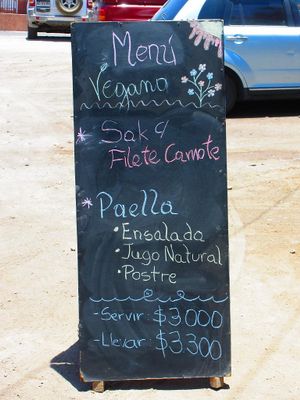 Menú
Vegano
* Sak q
Filete Camote
* Paella
• Ensalada
• Jugo Natural
• Postre
- Servir: $3.000
- Llevar: $3.300